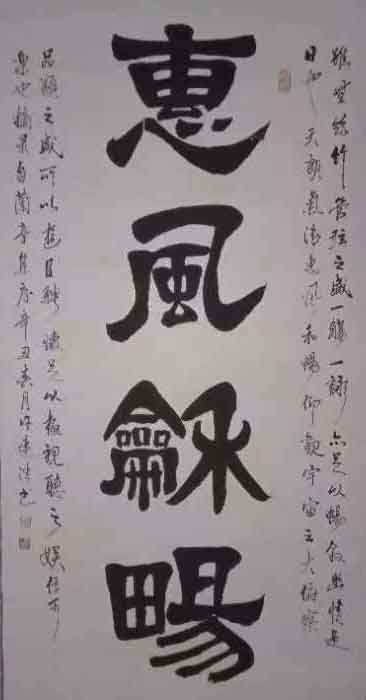 雖無絲竹管弦之盛一觴一詠亦足以暢敘幽情是
日也天朗氣清惠風和暢仰觀宇宙之大俯察
惠風龢畼
品類之盛所以遊目騁懷足以極視聽之娛信可
樂也摘录自蘭亭集序辛丑春月